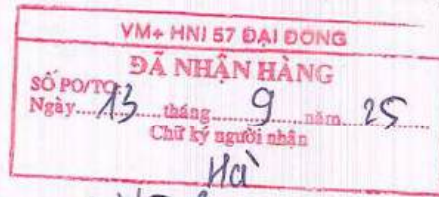 VM+ HNI 57 ĐẠI ĐỒNG
ĐÃ NHẬN HÀNG
SỐ PO/TO:
Ngày 13 tháng 9 năm 25
Chữ ký người nhận
Hà